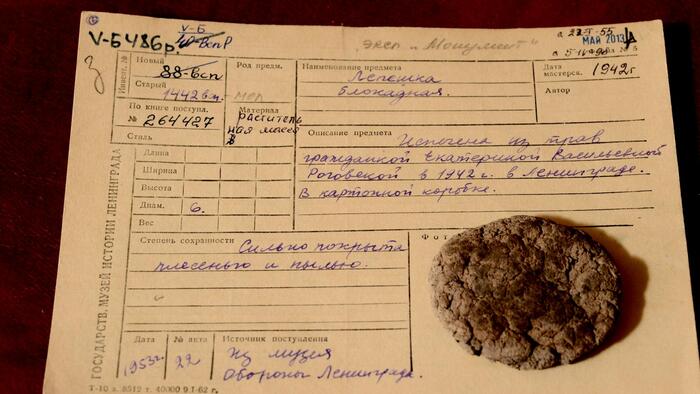 V-Б
V-Б 486р.
эксп „Монумент"
МАЙ 2013
Инвент. №
Новый
88-всп
Старый
1442 вс
По книге поступл.
№ 264427
Стиль
Род предм.
Материал
раститель
ная масса
Наименование предмета
Лепешка
блокадная.
Дата
мастерск.
1942 г
Автор
Описание предмета
Испечена из трав
гражданкой Екатериной Васильевной
Роговской в 1942 г. в Ленинграде.
В картонной коробке.
Длина
Ширина
Высота
Диам. 6.
Вес
Степень сохранности
Сильно покрыта
плесенью и пылью
Фот
Дата
1953 г.
№ акта
22
Источник поступления
Из музея
Обороны Ленинграда.
ГОСУДАРСТВ. МУЗЕЙ ИСТОРИИ ЛЕНИНГРАДА
Т-10 з. 8512 т. 40000 9/I-62 г.